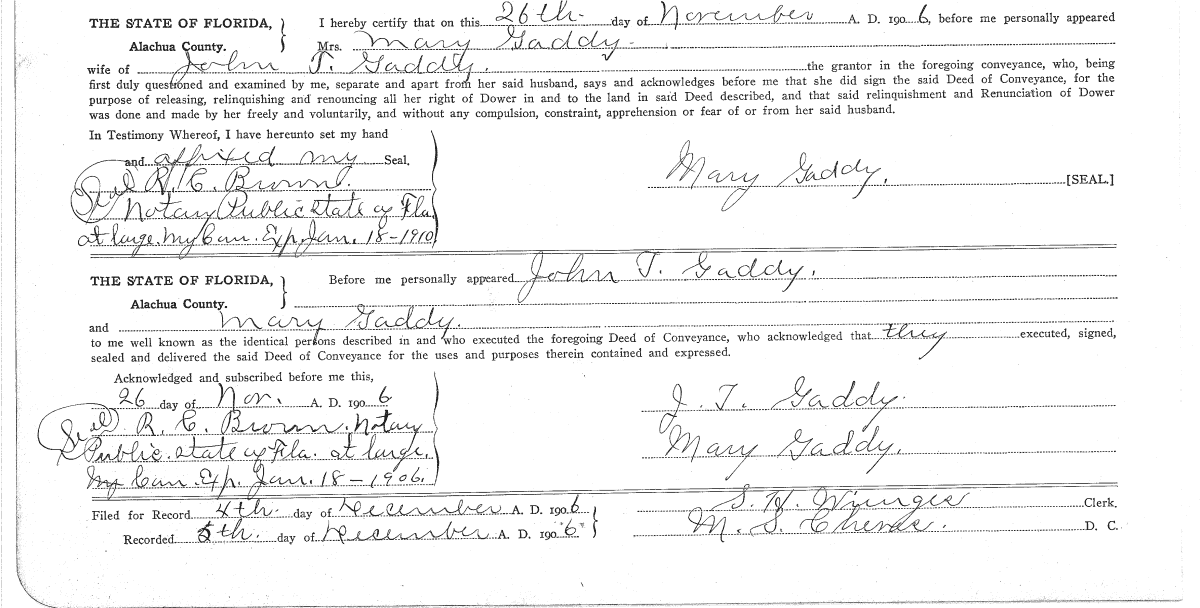 THE STATE OF FLORIDA, } I hereby certify that on this 26th. day of November A. D. 1906, before me personally appeared
Alachua County. Mrs. Mary Gaddy.
wife of John T. Gaddy. the grantor in the foregoing conveyance, who, being
first duly questioned and examined by me, separate and apart from her said husband, says and acknowledges before me that she did sign the said Deed of Conveyance, for the
purpose of releasing, relinquishing and renouncing all her right of Dower in and to the land in said Deed described, and that said relinquishment and Renunciation of Dower
was done and made by her freely and voluntarily, and without any compulsion, constraint, apprehension or fear of or from her said husband.
In Testimony Whereof, I have hereunto set my hand
and affixed my Seal.
Seal R. C. Brown.
Mary Gaddy. [SEAL.]
Notary Public state of Fla.
at large. My Com. Exp. Jan. 18-1910
THE STATE OF FLORIDA, } Before me personally appeared John T. Gaddy.
Alachua County.
and Mary Gaddy.
to me well known as the identical persons described in and who executed the foregoing Deed of Conveyance, who acknowledged that they executed, signed,
sealed and delivered the said Deed of Conveyance for the uses and purposes therein contained and expressed.
Acknowledged and subscribed before me this,
26 day of Nov. A. D. 1906
J. T. Gaddy.
Seal R. C. Brown. Notary
Public. state of Fla. at large.
Mary Gaddy.
My Com. Exp. Jan. 18-1906.
Filed for Record 4th. day of December A. D. 1906 } S. H. Wienges Clerk.
Recorded 5th. day of December A. D. 1906 M. S. D. C.